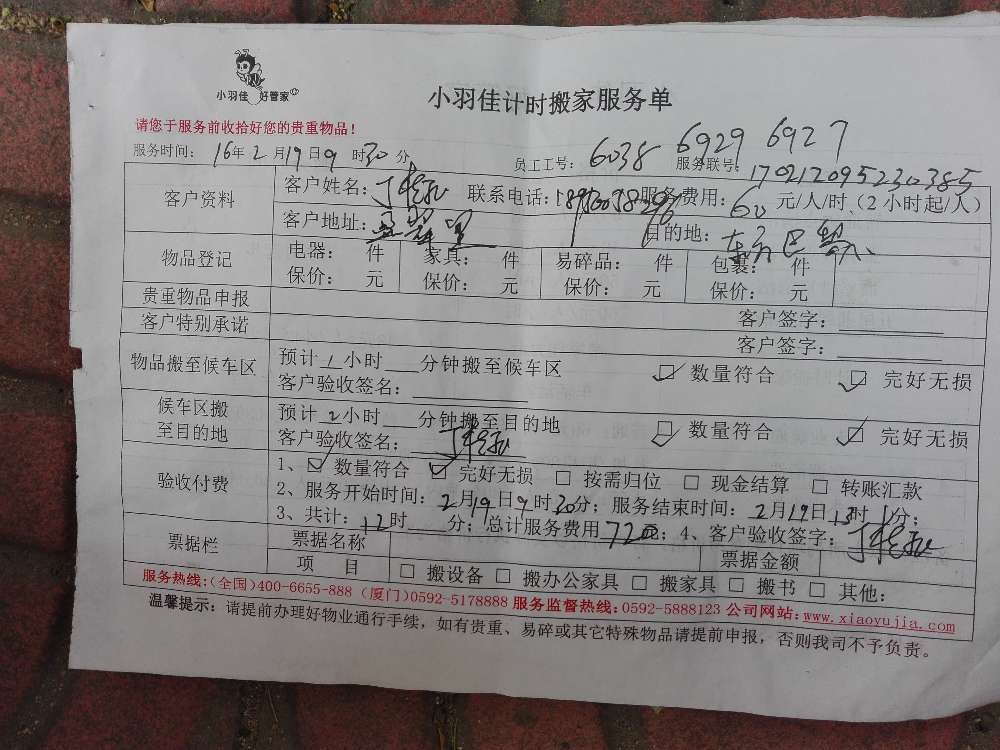 小羽佳 好管家
小羽佳计时搬家服务单
请您于服务前收拾好您的贵重物品！
6929 6927
服务时间： 16年2月19日9时30分 员工工号：6038 服务联号：170212095230385
客户资料 客户姓名： 联系电话： 服务费用：60元/人/时、（2小时起/人）
客户地址： 目的地：
物品登记 电器： 件 家具： 件 易碎品： 件 包裹： 件
保价： 元 保价： 元 保价： 元 保价： 元
贵重物品申报 客户签字：
客户特别承诺 客户签字：
物品搬至候车区 预计1小时 分钟搬至候车区 ☑ 数量符合 ☑ 完好无损
客户验收签名：
候车区搬至目的地 预计2小时 分钟搬至目的地 ☑ 数量符合 ☑ 完好无损
客户验收签名：
验收付费 1、☑ 数量符合 ☑ 完好无损 □ 按需归位 □ 现金结算 □ 转账汇款
2、服务开始时间：2月19日9时30分；服务结束时间：2月19日13时 分；
3、共计：12时 分；总计服务费用720；4、客户验收签字：
票据栏 票据名称 票据金额
项 目 □ 搬设备 □ 搬办公家具 □ 搬家具 □ 搬书 □ 其他：
服务热线：（全国）400-6655-888（厦门）0592-5178888 服务监督热线：0592-5888123 公司网站：www.xiaoyujia.com
温馨提示：请提前办理好物业通行手续，如有贵重、易碎或其它特殊物品请提前申报，否则我司不予负责。